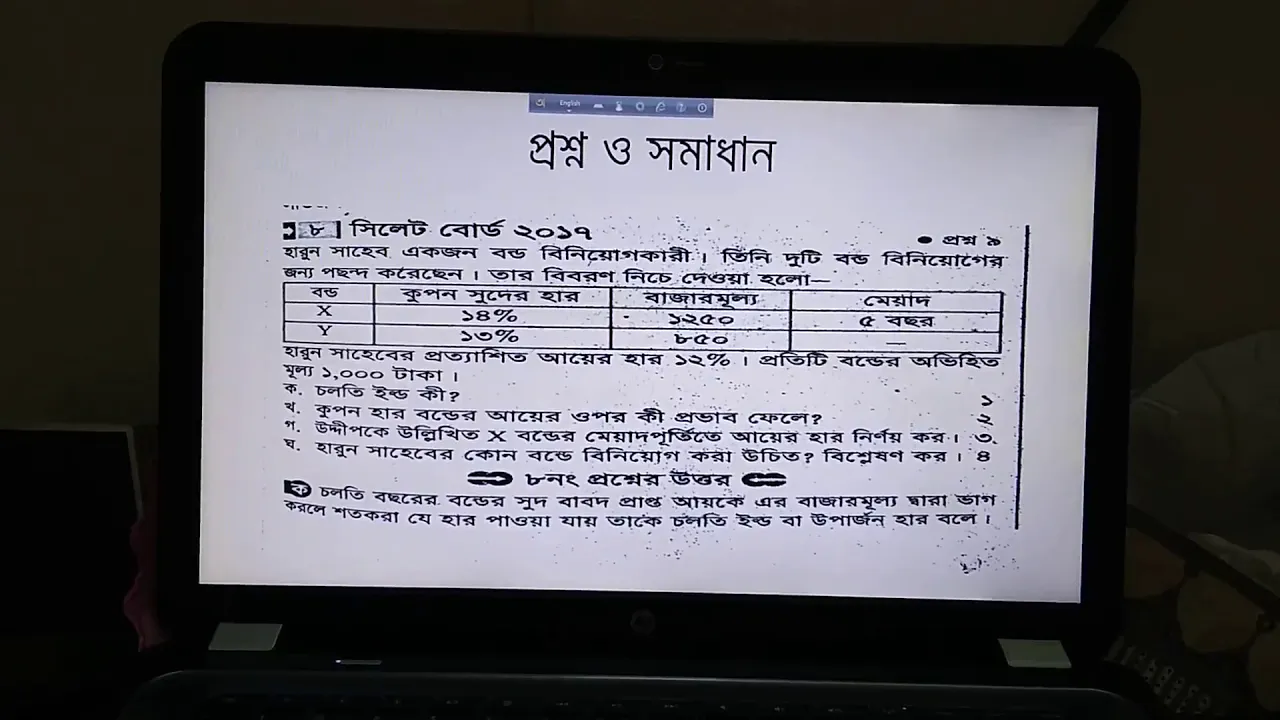 English
প্রশ্ন ও সমাধান
৮ সিলেট বোর্ড ২০১৭ ● প্রশ্ন ৯
হারুন সাহেব একজন বন্ড বিনিয়োগকারী। তিনি দুটি বন্ড বিনিয়োগের
জন্য পছন্দ করেছেন। তার বিবরণ নিচে দেওয়া হলো—
বন্ড কুপন সুদের হার বাজারমূল্য মেয়াদ
X ১৪% ১২৫০ ৫ বছর
Y ১৩% ৮৫০ —
হারুন সাহেবের প্রত্যাশিত আয়ের হার ১২%। প্রতিটি বন্ডের অভিহিত
মূল্য ১,০০০ টাকা।
ক. চলতি ইল্ড কী? ১
খ. কুপন হার বন্ডের আয়ের ওপর কী প্রভাব ফেলে? ২
গ. উদ্দীপকে উল্লিখিত X বন্ডের মেয়াদপূর্তিতে আয়ের হার নির্ণয় কর। ৩
ঘ. হারুন সাহেবের কোন বন্ডে বিনিয়োগ করা উচিত? বিশ্লেষণ কর। ৪
৮নং প্রশ্নের উত্তর
ক চলতি বছরের বন্ডের সুদ বাবদ প্রাপ্ত আয়কে এর বাজারমূল্য দ্বারা ভাগ
করলে শতকরা যে হার পাওয়া যায় তাকে চলতি ইল্ড বা উপার্জন হার বলে।
hp